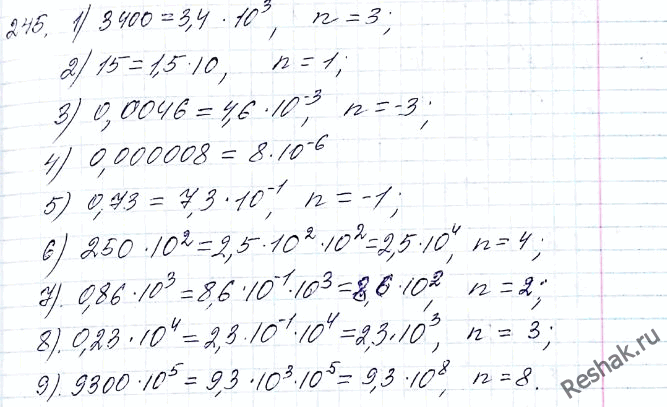 245. 1) 3400 = 3,4 · 10³, n = 3;
2) 15 = 1,5 · 10, n = 1;
3) 0,0046 = 4,6 · 10⁻³, n = -3;
4) 0,000008 = 8 · 10⁻⁶
5) 0,73 = 7,3 · 10⁻¹, n = -1;
6) 250 · 10² = 2,5 · 10² · 10² = 2,5 · 10⁴, n = 4;
7). 0,86 · 10³ = 8,6 · 10⁻¹ · 10³ = 8,6 · 10², n = 2;
8). 0,23 · 10⁴ = 2,3 · 10⁻¹ · 10⁴ = 2,3 · 10³, n = 3;
9). 9300 · 10⁵ = 9,3 · 10³ · 10⁵ = 9,3 · 10⁸, n = 8.
Reshak.ru